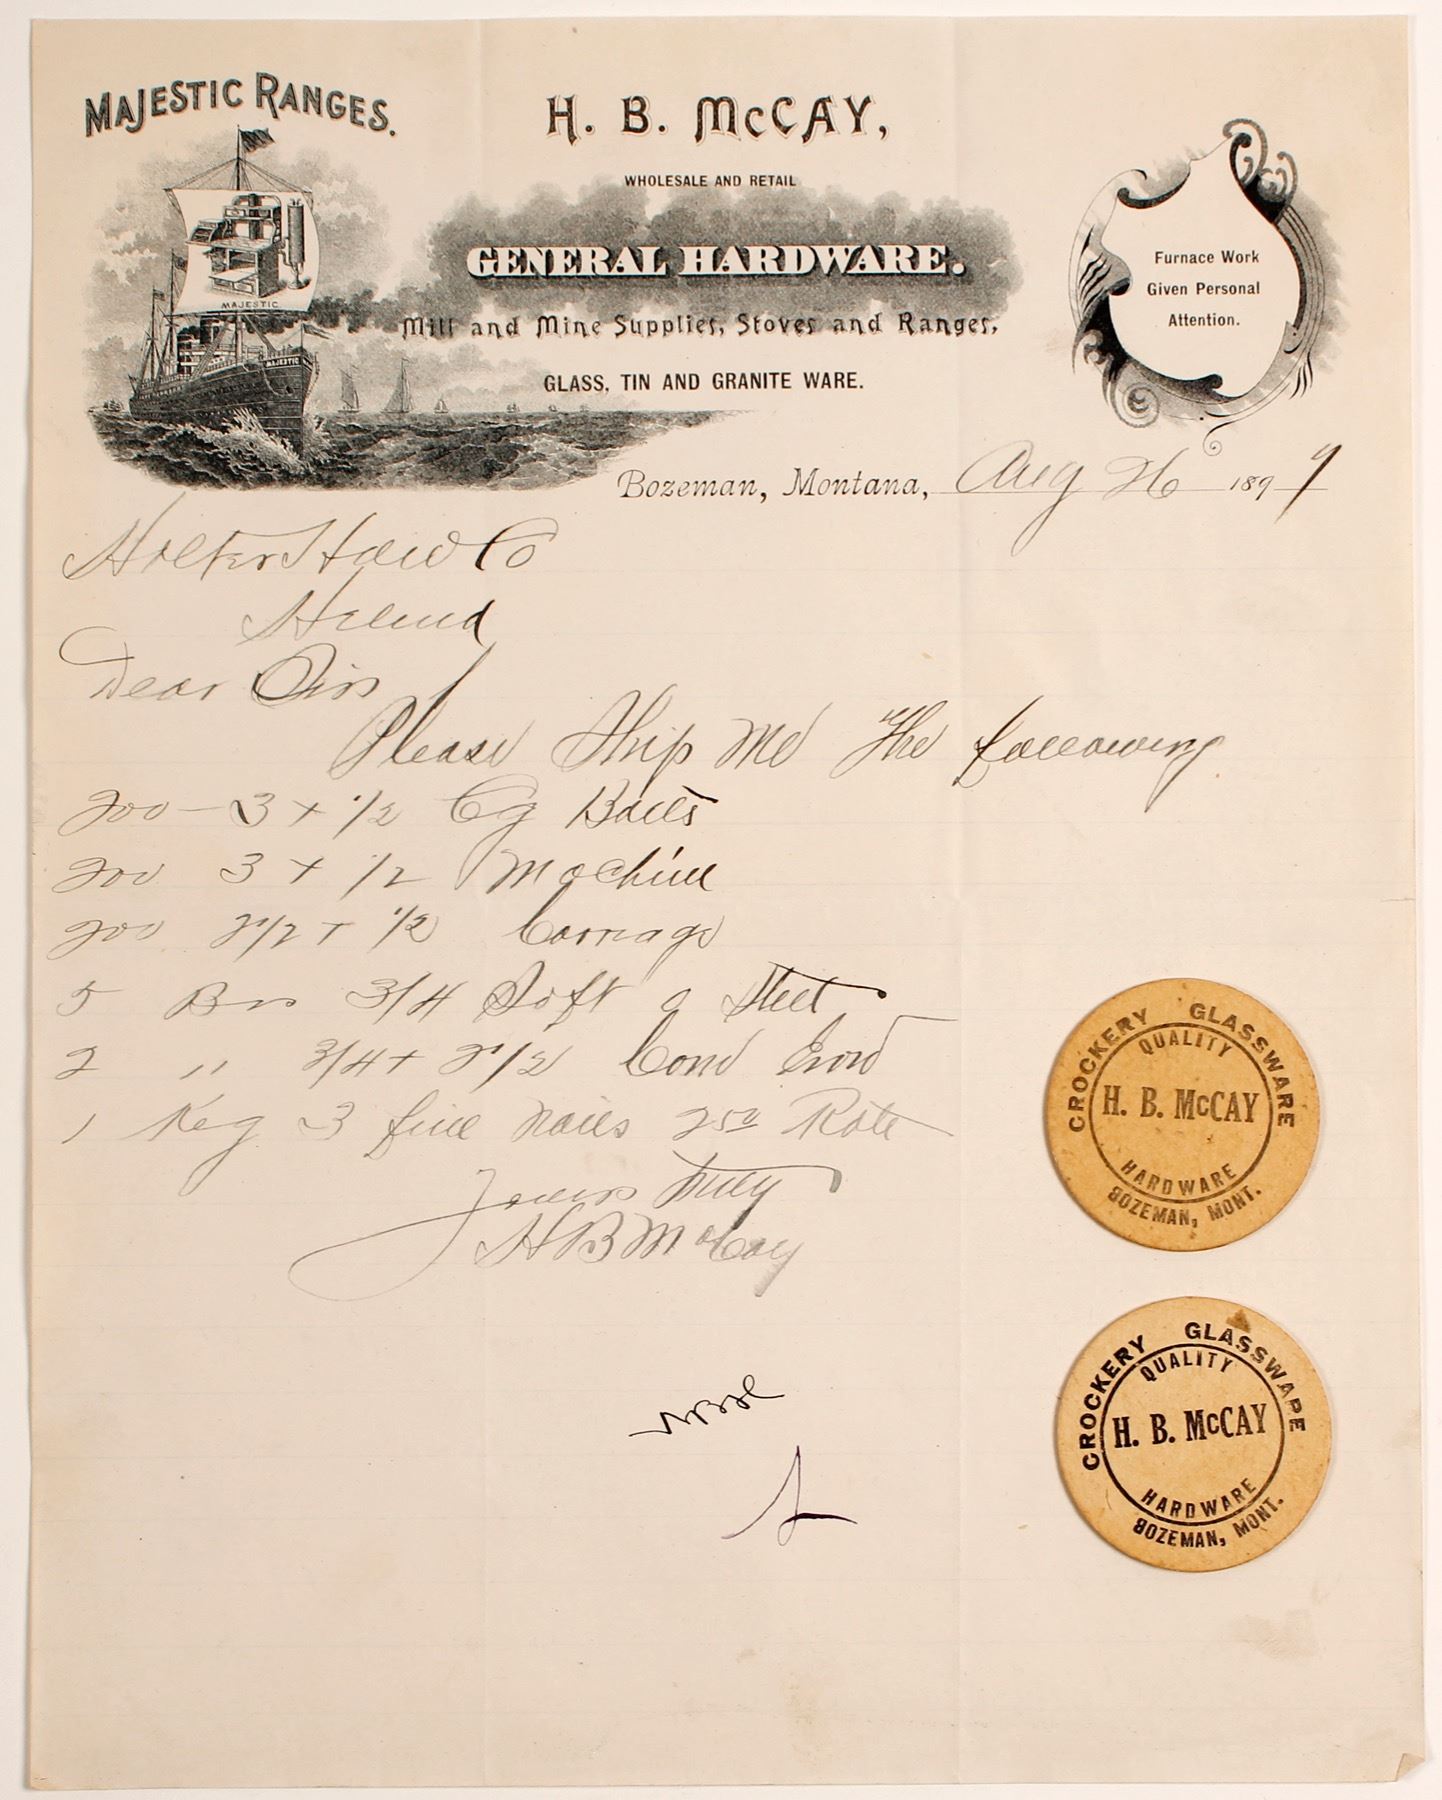 MAJESTIC RANGES.
MAJESTIC
MAJESTIC
H. B. McCAY,
WHOLESALE AND RETAIL
GENERAL HARDWARE.
Mill and Mine Supplies, Stoves and Ranges,
GLASS, TIN AND GRANITE WARE.
Furnace Work
Given Personal
Attention.
Bozeman, Montana, Aug 26 1899
Holter Haw Co
Helena
Dear Sirs
Please Ship Me The following
200 - 3 x 1/2 Cg Bolts
200 3 x 1/2 Machine
200 2 1/2 x 1/2 Carriage
5 Brs 3/4 Soft Steel
2 " 3/4 x 2 1/2
1 Keg 3 fine nails 250 Rate
Yours Truly
H B McCay
CROCKERY GLASSWARE
QUALITY
H. B. McCAY
HARDWARE
BOZEMAN, MONT.
CROCKERY GLASSWARE
QUALITY
H. B. McCAY
HARDWARE
BOZEMAN, MONT.